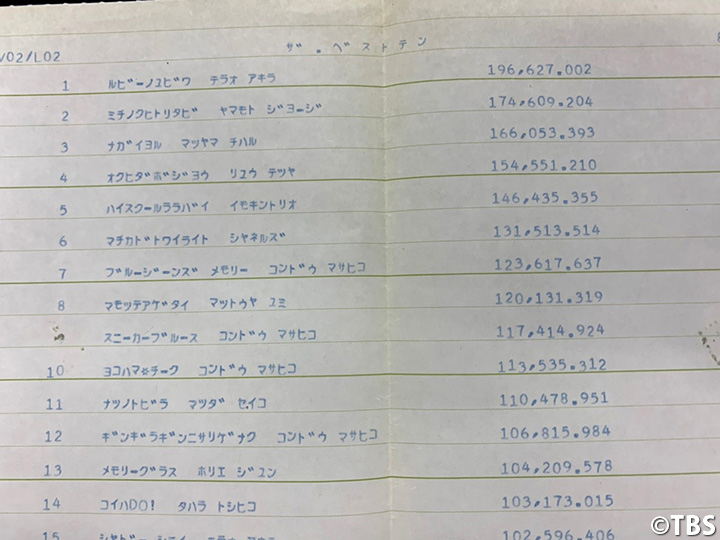 V02/L02 ザ・ベストテン 8
1 ルビーノユビワ テラオ アキラ 196,627.002
2 ミチノクヒトリタビ ヤマモト ジヨージ 174,609.204
3 ナガイヨル マツヤマ チハル 166,053.393
4 オクヒダボジヨウ リユウ テツヤ 154,551.210
5 ハイスクールララバイ イモキントリオ 146,435.355
6 マチカドトワイライト シヤネルズ 131,513.514
7 ブルージーンズ メモリー コンドウ マサヒコ 123,617.637
8 マモツテアゲタイ マツトウヤ ユミ 120,131.319
スニーカーブルース コンドウ マサヒコ 117,414.924
10 ヨコハマ☆チーク コンドウ マサヒコ 113,535.312
11 ナツノトビラ マツダ セイコ 110,478.951
12 ギンギラギンニサリゲナク コンドウ マサヒコ 106,815.984
13 メモリーグラス ホリエ ジユン 104,209.578
14 コイハDO! タハラ トシヒコ 103,173.015
15 102,596.406
©TBS